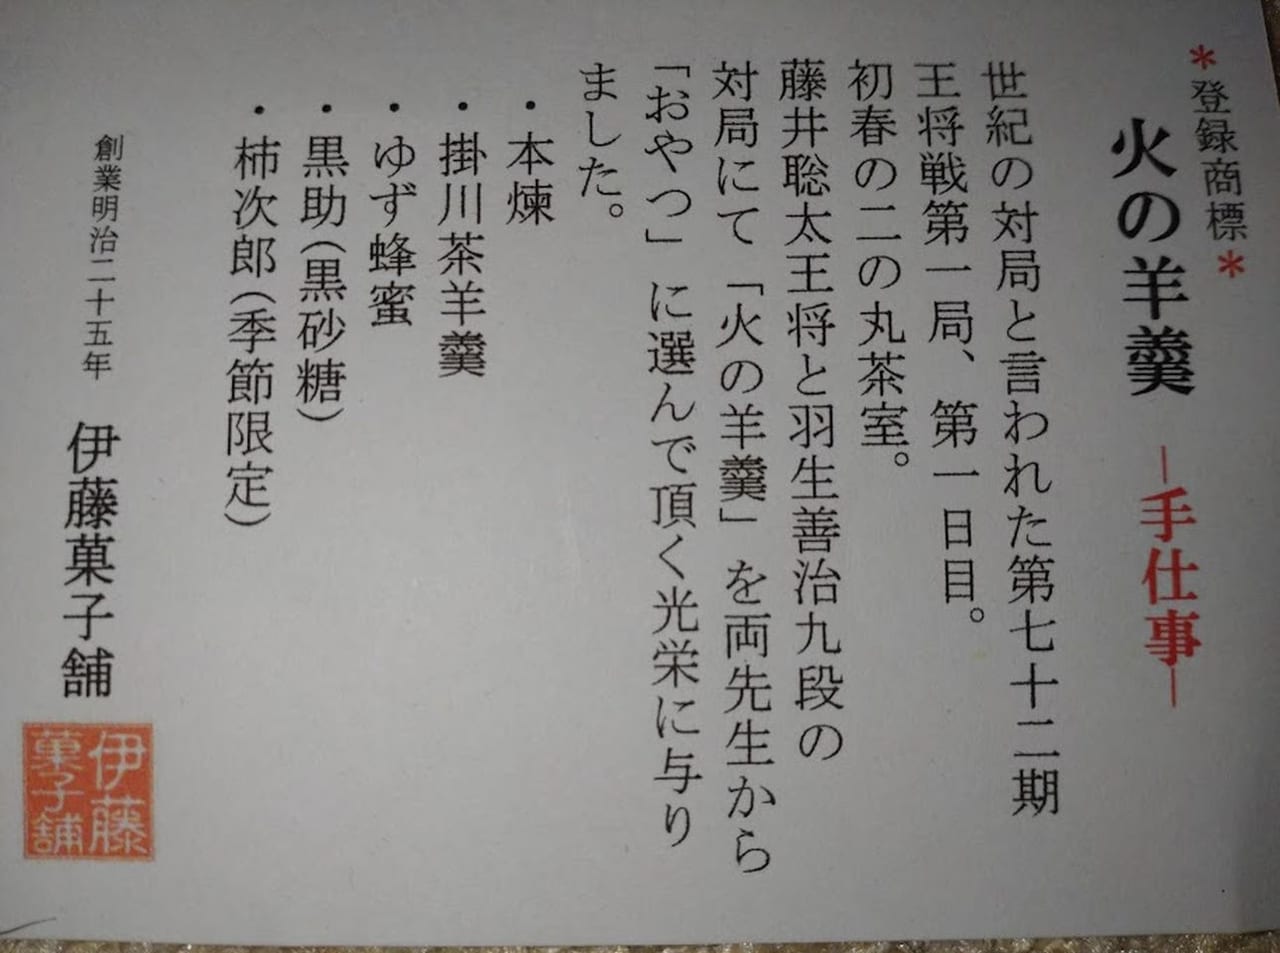 *登録商標*
火の羊羹 ―手仕事―
世紀の対局と言われた第七十二期
王将戦第一局、第一日目。
初春の二の丸茶室。
藤井聡太王将と羽生善治九段の
対局にて「火の羊羹」を両先生から
「おやつ」に選んで頂く光栄に与り
ました。
・本煉
・掛川茶羊羹
・ゆず蜂蜜
・黒助(黒砂糖)
・柿次郎(季節限定)
創業明治二十五年 伊藤菓子舗
伊藤
菓子舗